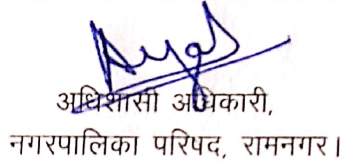 अधिशासी अधिकारी,
नगरपालिका परिषद, रामनगर।